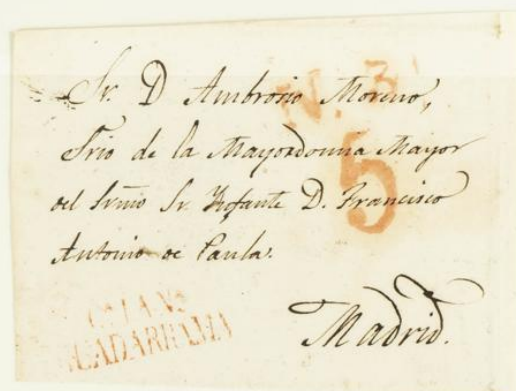 Sr. D Ambrosio Moreno,
Srio de la Mayordomia Mayor
del Srmo Sr. Ynfante D. Francisco
Antonio de Paula.
Madrid.
N. 3
5
GUADARRAMA